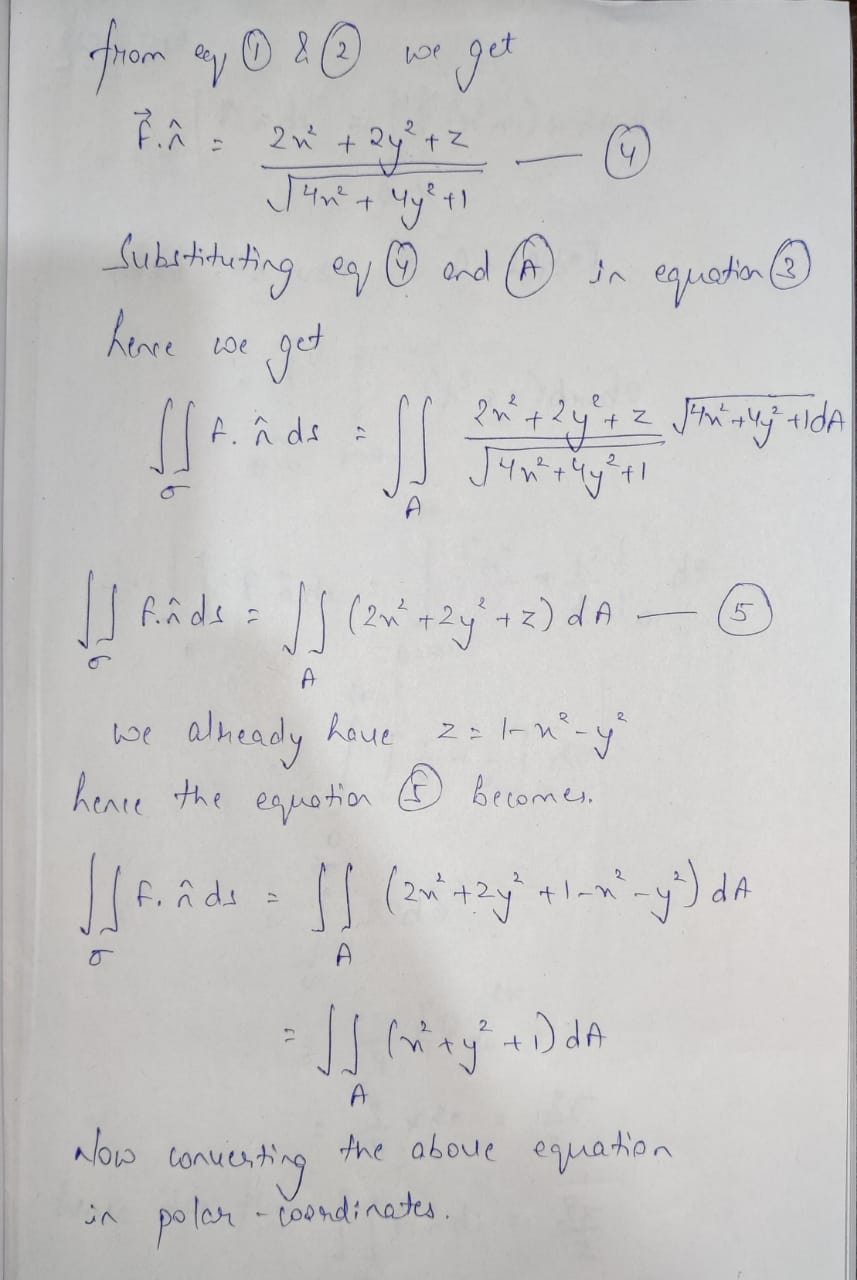 from eq ① & ② we get
F⃗.n̂ = (2x² + 2y² + z) / √(4x² + 4y² + 1) — ④
Substituting eq ④ and Ⓐ in equation ③
hence we get
∬_σ F.n̂ ds = ∬_A (2x² + 2y² + z) / √(4x² + 4y² + 1) √(4x² + 4y² + 1) dA
∬_σ F.n̂ ds = ∬_A (2x² + 2y² + z) dA — ⑤
we already have z = 1-x²-y²
hence the equation ⑤ becomes.
∬_σ F.n̂ ds = ∬_A (2x² + 2y² + 1-x²-y²) dA
= ∬_A (x² + y² + 1) dA
Now converting the above equation
in polar-coordinates.